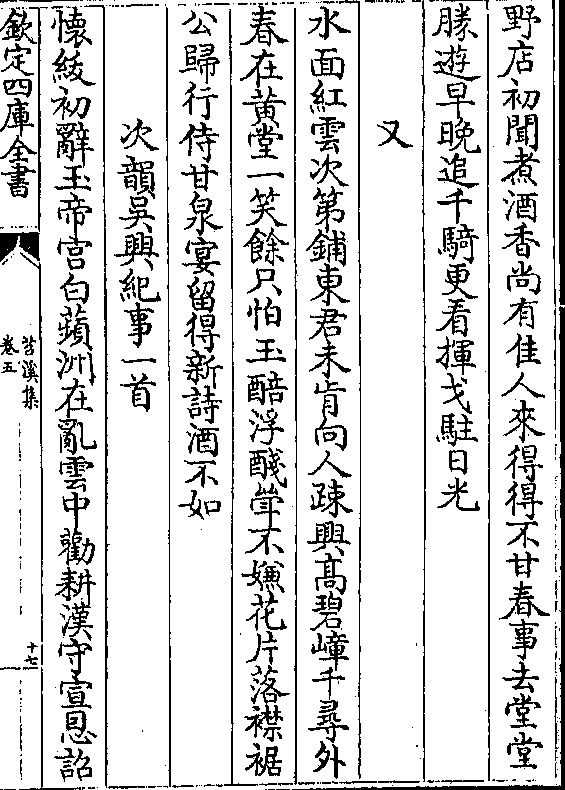 野店初聞煮酒香尚有佳人來得得不甘春事去堂堂
勝遊早晚追千騎更看揮戈駐日光
又
水面紅雲次第鋪東君未肯向人疎興髙碧嶂千尋外
春在黄堂一笑餘只怕玉醅浮醆聳不嫌花片落襟裾
公歸行侍甘泉宴留得新詩酒不如
次韻吳興紀事一首
懷紱初辭玉帝宫白蘋洲在亂雲中勸耕漢守宣恩詔
欽定四庫全書
苕溪集
卷五
十七